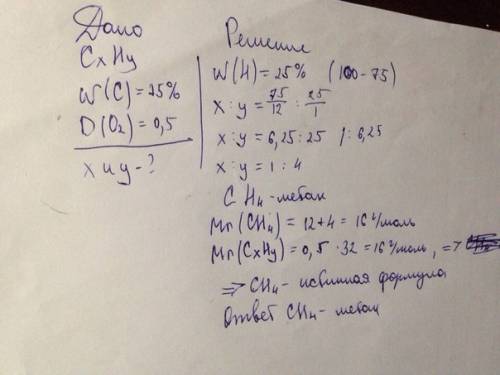 Дано
CxHy
W(C)=25%
D(O₂)=0,5
x и y-?
Решение
W(H)=25% (100-75)
x:y=75/12 : 25/1
x:y=6,25:25 /:6,25
x:y=1:4
CH₄-метан
Mr(CH₄)=12+4=16 г/моль
Mr(CxHy)=0,5·32=16 г/моль, =>
=> CH₄- истинная формула
Ответ CH₄- метан